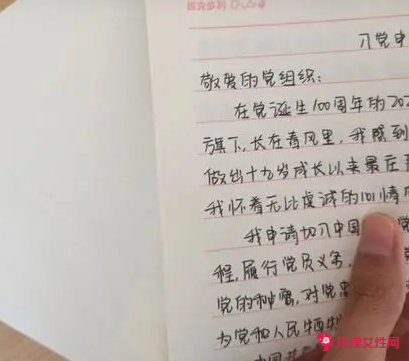 入党申
敬爱的党组织:
在党诞生100周年的202
旗下,长在春风里,我感到
做出十九岁成长以来最庄
我怀着无比虔诚的心情
我申请加入中国 党
程,履行党员义务,
党的秘密,对党忠
为党和人民牺牲
时尚女性网